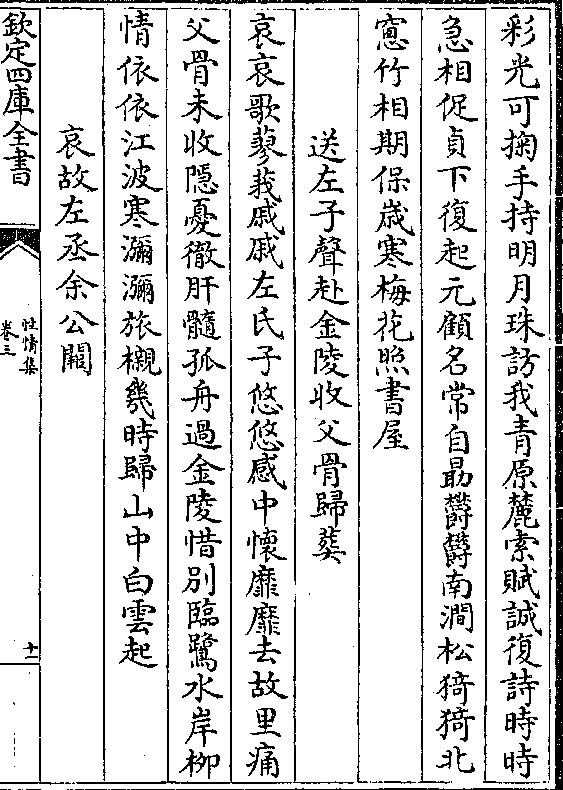 彩光可掬手持明月珠訪我青原麓索賦誠復詩時時
急相促貞下復起元顧名常自勗欝欝南澗松猗猗北
窻竹相期保歳寒梅花照書屋
送左子聲赴金陵收父骨歸葬
哀哀歌蓼莪戚戚左氏子悠悠感中懷靡靡去故里痛
父骨未收隠憂徹肝髓孤舟過金陵惜别臨鷺水岸柳
情依依江波寒瀰瀰旅櫬幾時歸山中白雲起
哀故左丞余公闕
欽定四庫全書
性情集
卷三
十一